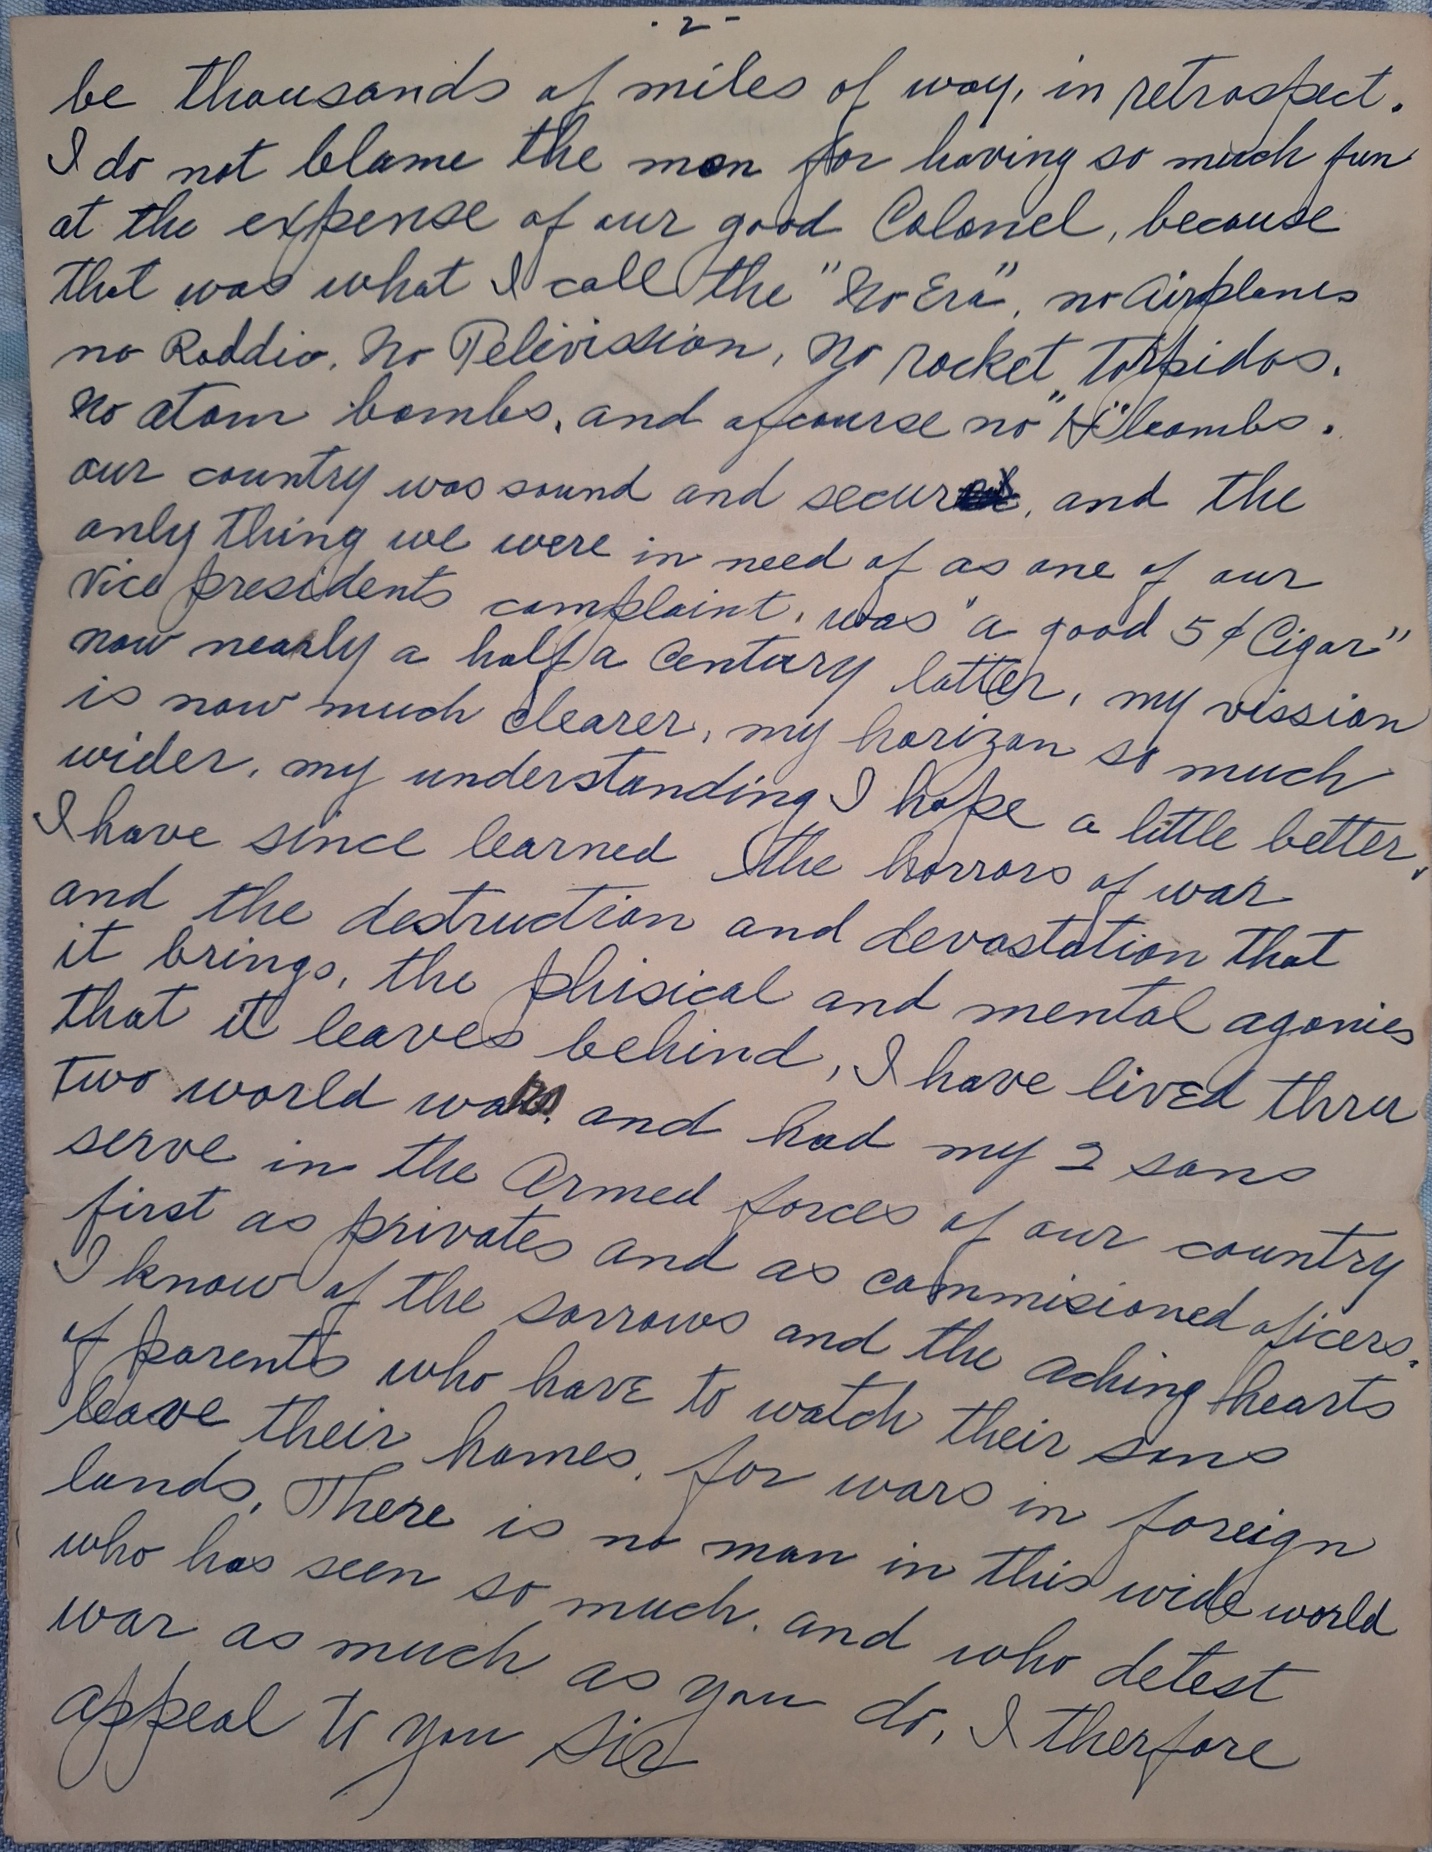 - 2 -
be thousands of miles of way, in retrospect.
I do not blame the men for having so much fun
at the expense of our good Colonel, because
that was what I call the "No Era", no Airplanes
no Raddio, No Television, No rocket Torpidos.
No atom bombs, and ofcourse no "H" bombs.
our country was sound and secure, and the
only thing we were in need of as one of our
Vice presidents complaint, was "a good 5¢ Cigar"
now nearly a half a Century latter, my vission
is now much clearer, my horizon so much
wider, my understanding I hope a little better.
I have since learned the horrors of war
and the destruction and devastation that
it brings, the phisical and mental agonies
that it leaves behind, I have lived thru
two world wars, and had my 2 sons
serve in the Armed forces of our country
first as privates and as commisioned oficers.
I know of the sorrows and the aching hearts
of parents who have to watch their sons
leave their homes, for wars in foreign
lands, There is no man in this wide world
who has seen so much, and who detest
war as much as you do, I therfore
appeal to you Sir